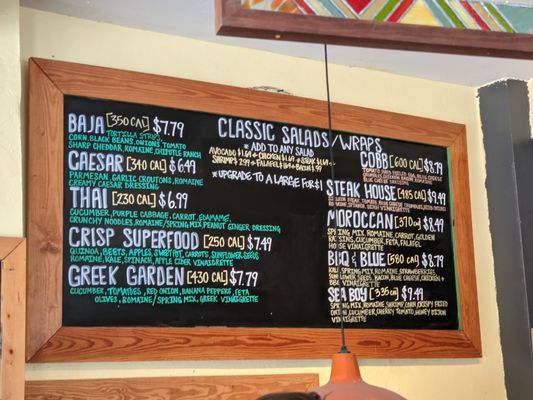 CLASSIC SALADS/WRAPS
* ADD TO ANY SALAD
AVOCADO $1.69 • CHICKEN $1.69 • STEAK $1.69 •
SHRIMP $2.99 • FALAFEL $1.69 • BACON $1.99
* UPGRADE TO A LARGE FOR $1
BAJA [350 CAL] $7.79
TORTILLA STRIPS,
CORN, BLACK BEANS, ONIONS, TOMATO
SHARP CHEDDAR, ROMAINE, CHIPOTLE RANCH
CAESAR [340 CAL] $6.49
PARMESAN, GARLIC CROUTONS, ROMAINE
CREAMY CAESAR DRESSING
THAI [230 CAL] $6.99
CUCUMBER, PURPLE CABBAGE, CARROT, EDAMAME,
CRUNCHY NOODLES, ROMAINE/SPRING MIX, PEANUT GINGER DRESSING
CRISP SUPERFOOD [250 CAL] $7.49
QUINOA, BEETS, APPLES, SWEET POT, CARROTS, SUNFLOWER SEEDS
ROMAINE, KALE, SPINACH, APPLE CIDER VINAIGRETTE
GREEK GARDEN [430 CAL] $7.79
CUCUMBER, TOMATOES, RED ONION, BANANA PEPPERS, FETA
OLIVES, ROMAINE/SPRING MIX, GREEK VINAIGRETTE
COBB [600 CAL] $8.79
BLUE CHEESE DRESSING
STEAK HOUSE [485 CAL] $9.49
MOROCCAN [370 CAL] $8.49
SPRING MIX, ROMAINE, CARROT, GOLDEN
CUCUMBER, FETA, FALAFEL
VINAIGRETTE
BBQ & BLUE [580 CAL] $8.79
SPRING MIX, ROMAINE, STRAWBERRIES
SEEDS, BACON, BLUE CHEESE, CHICKEN +
VINAIGRETTE
SEA BOY [335 CAL] $9.49
SPRING MIX, ROMAINE, SHRIMP, CORN, CRISPY FRIED
CUCUMBER, CHERRY TOMATO, HONEY DIJON
VINAIGRETTE